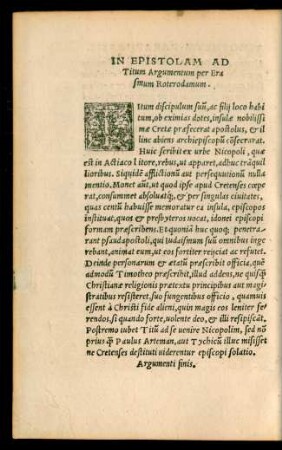 IN EPISTOLAM AD
Titum Argumentum per Era
smum Roterodamum.
TItum discipulum suũ, ac filij loco habi
tum, ob eximias dotes, insulæ nobilissi
mæ Cretæ præfecerat apostolus, & il
linc abiens archiepiscopũ cõsecrarat.
Huic scribit ex urbe Nicopoli, quæ
est in Actiaco litore, rebus, ut apparet, adhuc trãquil
lioribus. Siquidẽ afflictionũ aut persequutionũ nulla
mentio. Monet aũt, ut quod ipse apud Cretenses cœpe
rat, consummet absoluatq́;, & per singulas ciuitates,
quas centũ habuisse memoratur ea insula, episcopos
instituat, quos & presbyteros uocat, idonei episcopi
formam præscribens. Et quoniã huc quoq; penetra
rant pseudapostoli, qui Iudaismum suũ omnibus inge
rebant, animat eum, ut eos fortiter reijciat ac refutet.
Deinde personarum & ætatũ præscribit officia, quẽ
admodũ Timotheo præscribit, illud addens, ne quisq̃
Christianæ religionis prætextu principibus aut magi
stratibus resisteret, suo fungentibus officio, quamuis
essent à Christi fide alieni, quin magis eos leniter fe
rendos, si quando forte, uolente deo, & illi resipiscãt.
Postremo iubet Titũ ad se uenire Nicopolim, sed nõ
prius q̃ Paulus Arteman, aut Tychicũ illuc misisset
ne Cretenses destituti uiderentur episcopi solatio.
Argumenti finis.